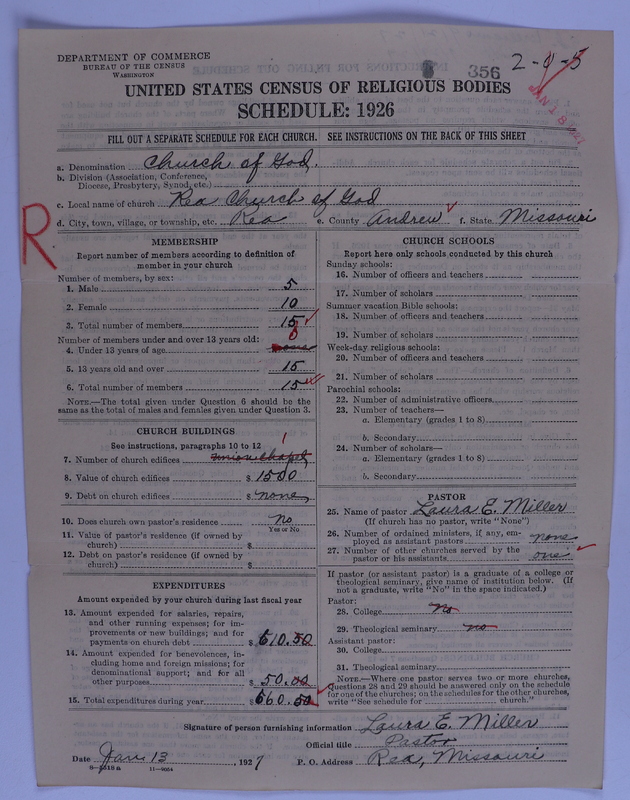 DEPARTMENT OF COMMERCE
BUREAU OF THE CENSUS
WASHINGTON
356
2-0-5
UNITED STATES CENSUS OF RELIGIOUS BODIES
SCHEDULE: 1926
FILL OUT A SEPARATE SCHEDULE FOR EACH CHURCH. SEE INSTRUCTIONS ON THE BACK OF THIS SHEET
a. Denomination Church of God.
b. Division (Association, Conference, Diocese, Presbytery, Synod, etc.)
c. Local name of church Rea Church of God
d. City, town, village, or township, etc. Rea e. County Andrew f. State Missouri
R
MEMBERSHIP
Report number of members according to definition of member in your church
Number of members, by sex:
1. Male 5
2. Female 10
3. Total number of members 15
Number of members under and over 13 years old:
0
4. Under 13 years of age none
5. 13 years old and over 15
6. Total number of members 15
NOTE.—The total given under Question 6 should be the same as the total of males and females given under Question 3.
CHURCH BUILDINGS
See instructions, paragraphs 10 to 12
1
7. Number of church edifices Union Chapel
8. Value of church edifices $ 1500
9. Debt on church edifices $ none
10. Does church own pastor's residence No
Yes or No
11. Value of pastor's residence (if owned by church) $
12. Debt on pastor's residence (if owned by church) $
EXPENDITURES
Amount expended by your church during last fiscal year
13. Amount expended for salaries, repairs, and other running expenses; for improvements or new buildings; and for payments on church debt $ 610.50
14. Amount expended for benevolences, including home and foreign missions; for denominational support; and for all other purposes $ 50.00
15. Total expenditures during year $ 660.50
CHURCH SCHOOLS
Report here only schools conducted by this church
Sunday schools:
16. Number of officers and teachers
17. Number of scholars
Summer vacation Bible schools:
18. Number of officers and teachers
19. Number of scholars
Week-day religious schools:
20. Number of officers and teachers
21. Number of scholars
Parochial schools:
22. Number of administrative officers
23. Number of teachers—
a. Elementary (grades 1 to 8)
b. Secondary
24. Number of scholars—
a. Elementary (grades 1 to 8)
b. Secondary
PASTOR
25. Name of pastor Laura E. Miller
(If church has no pastor, write "None")
26. Number of ordained ministers, if any, employed as assistant pastors none
27. Number of other churches served by the pastor or his assistants one
If pastor (or assistant pastor) is a graduate of a college or theological seminary, give name of institution below. (If not a graduate, write "No" in the space indicated.)
Pastor:
28. College No
29. Theological seminary no
Assistant pastor:
30. College
31. Theological seminary
NOTE.—Where one pastor serves two or more churches, Questions 28 and 29 should be answered only on the schedule for one of the churches; on the schedules for the other churches, write "See schedule for church."
Signature of person furnishing information Laura E. Miller
Official title Pastor
Date Jan. 13, 1927 P. O. Address Rea, Missouri
11-9054